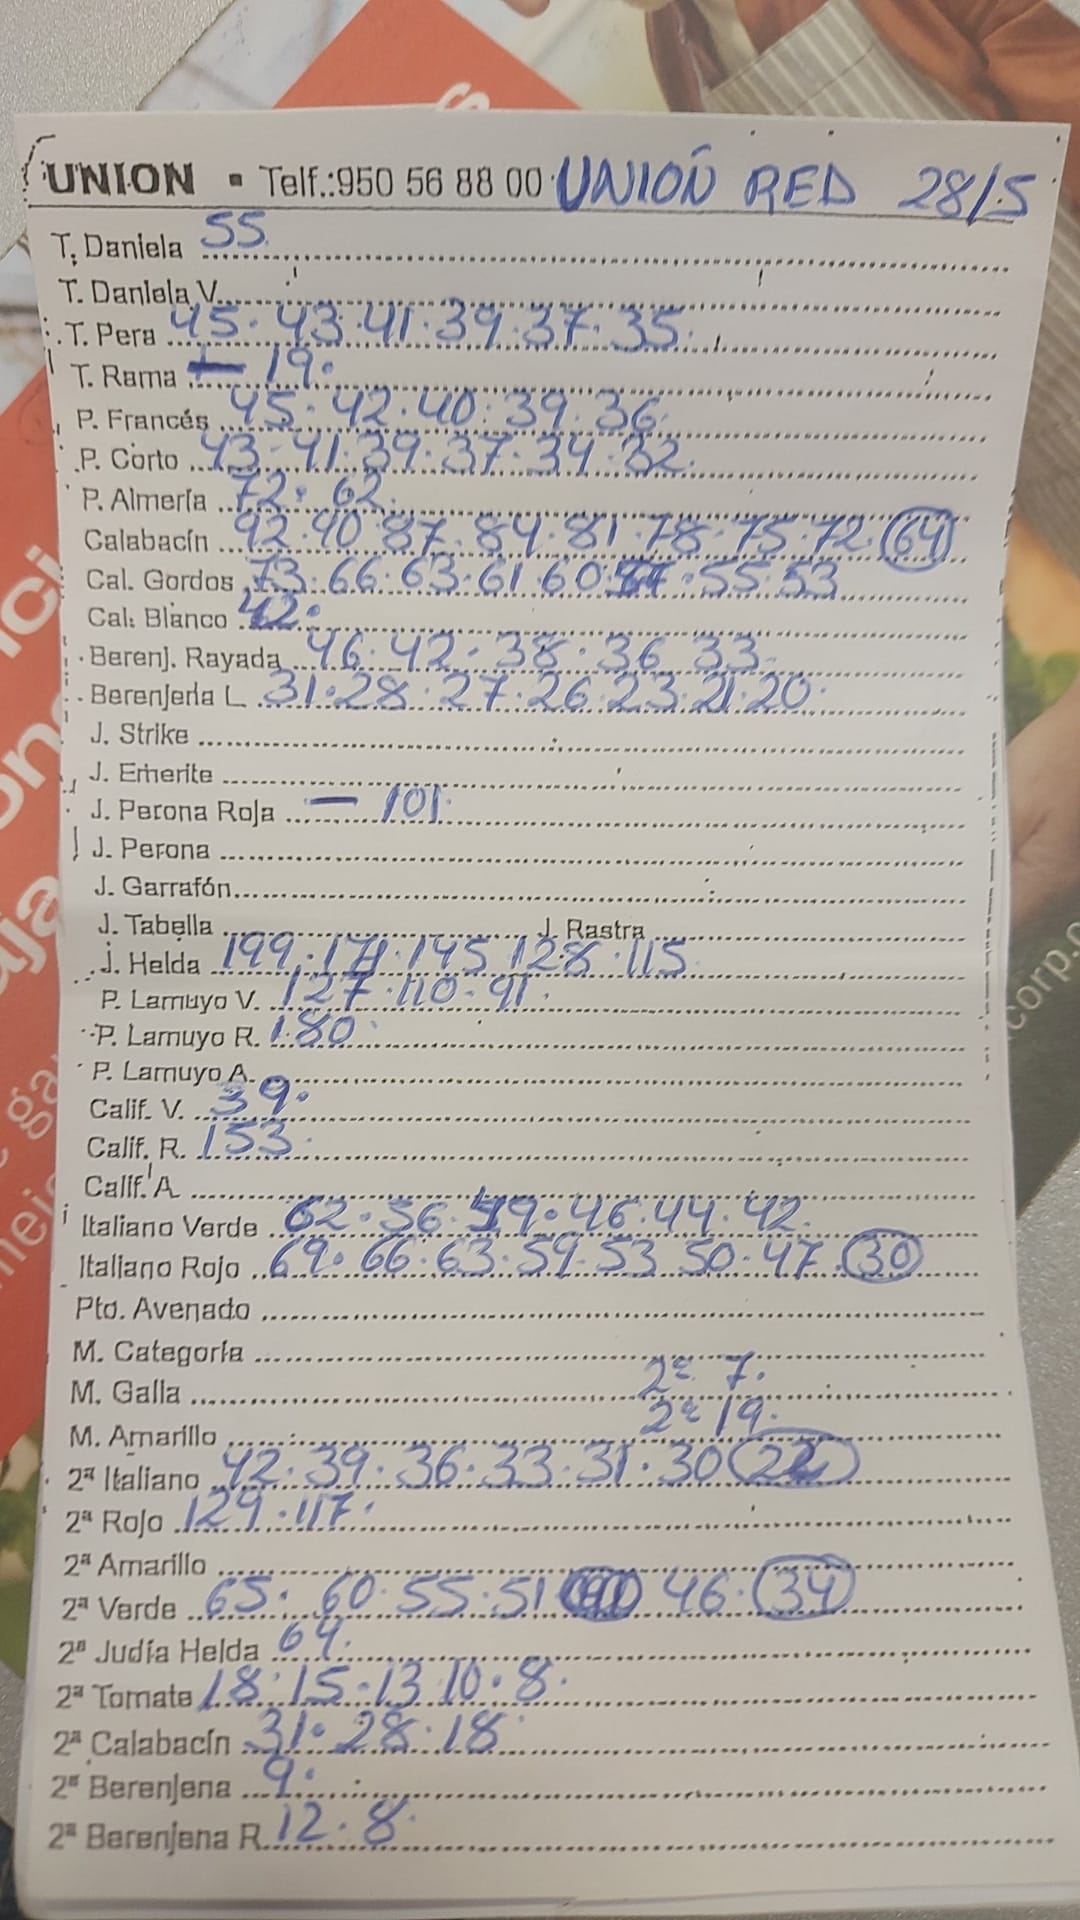 UNION • Telf.:950 56 88 00 UNIÓN RED 28/5
T. Daniela 55
T. Daniela V.
T. Pera 45. 43. 41. 39. 37. 35.
T. Rama — 19.
P. Francés 45. 42. 40. 39. 36.
P. Corto 43. 41. 39. 37. 34. 32.
P. Almería 72. 62.
Calabacín 92. 90 87. 84. 81. 78. 75. 72. 64
Cal. Gordos 73. 66. 63. 61 60. 55. 53
Cal. Blanco 42.
Berenj. Rayada 46. 42. 38. 36 33.
Berenjena L. 31. 28. 27. 26. 23. 21. 20.
J. Strike
J. Emerite
J. Perona Roja — 101.
J. Perona
J. Garrafón
J. Tabella J. Rastra
J. Helda 199. 171. 145 128. 115
P. Lamuyo V. 127. 110. 91.
P. Lamuyo R. 180
P. Lamuyo A.
Calif. V. 39.
Calif. R. 153.
Calif. A
Italiano Verde 62. 56. 49. 46. 44. 42.
Italiano Rojo 69. 66. 63. 59. 53 50. 47. 30
Pto. Avenado
M. Categoría
M. Galla 2ª 7.
M. Amarillo 2ª 19.
2ª Italiano 42. 39. 36. 33. 31. 30
2ª Rojo 129. 117.
2ª Amarillo
2ª Verde 65. 60. 55. 51 46. 34
2ª Judía Helda 64.
2ª Tomate 18. 15. 13 10. 8.
2ª Calabacín 31. 28. 18
2ª Berenjena 9.
2ª Berenjena R. 12. 8.